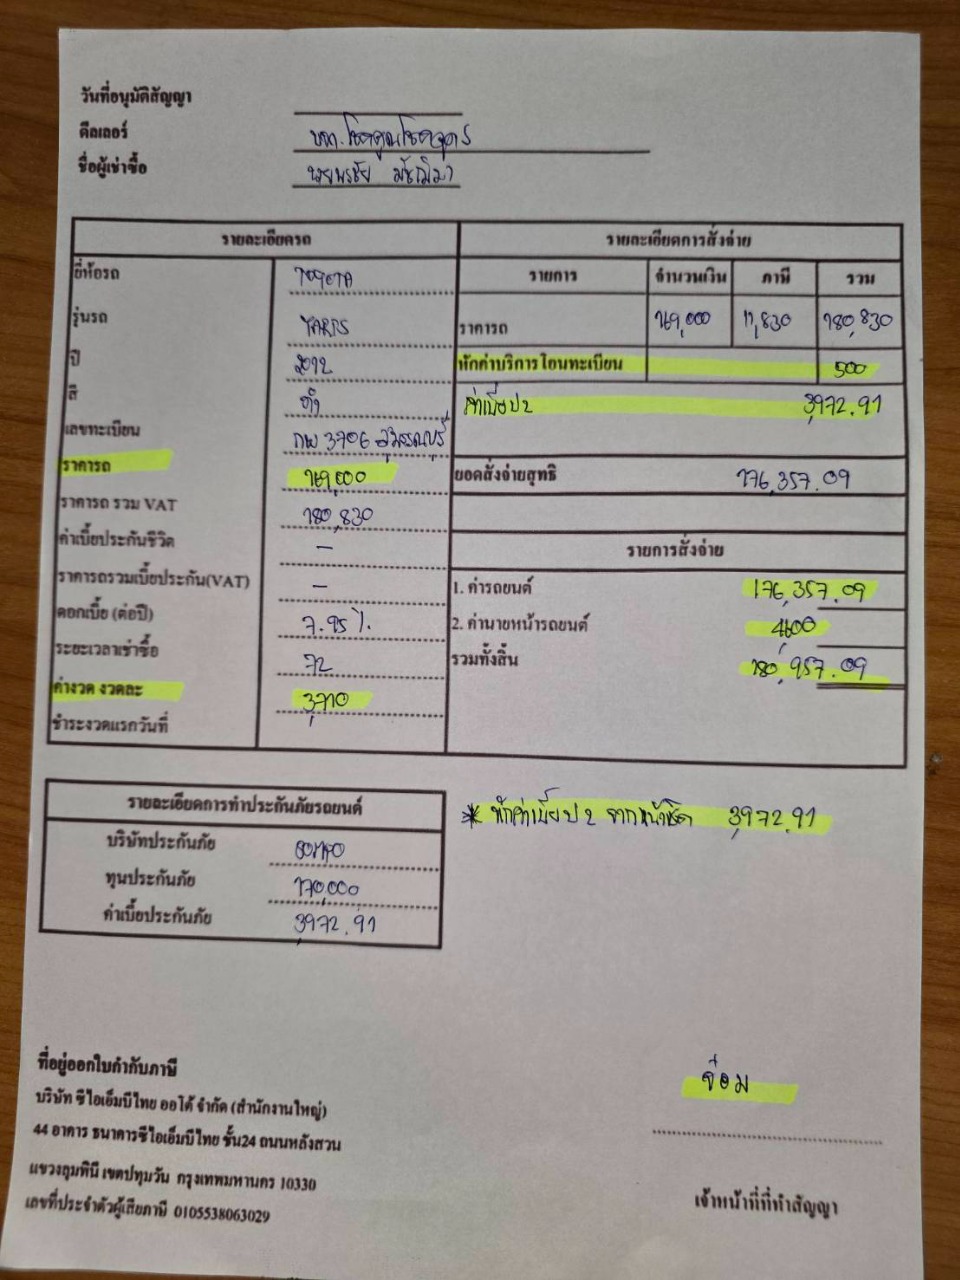 วันที่อนุมัติสัญญา
ดีลเลอร์ บจก.โชคคูณโชคจูดร
ชื่อผู้เช่าซื้อ นายพรชัย
รายละเอียดรถ
ยี่ห้อรถ TOYOTA
รุ่นรถ YARIS
ปี 2012
สี ดำ
เลขทะเบียน กพ 3706 สุพรรณบุรี
ราคารถ 169,000
ราคารถ รวม VAT 180,830
ค่าเบี้ยประกันชีวิต -
ราคารถรวมเบี้ยประกัน(VAT) -
ดอกเบี้ย (ต่อปี) 7.95 %
ระยะเวลาเช่าซื้อ 72
ค่างวด งวดละ 3,710
ชำระงวดแรกวันที่
รายละเอียดการสั่งจ่าย
รายการ จำนวนเงิน ภาษี รวม
ราคารถ 169,000 11,830 180,830
หักค่าบริการโอนทะเบียน 500
ค่าเบี้ยป2 3,972.91
ยอดสั่งจ่ายสุทธิ 176,357.09
รายการสั่งจ่าย
1. ค่ารถยนต์ 176,357.09
2. ค่านายหน้ารถยนต์ 4,600
รวมทั้งสิ้น 180,957.09
รายละเอียดการทำประกันภัยรถยนต์
บริษัทประกันภัย
ทุนประกันภัย 170,000
ค่าเบี้ยประกันภัย 3,972.91
* หักค่าเบี้ยป2 จากหน้าเช็ค 3,972.91
ที่อยู่ออกใบกำกับภาษี
บริษัท ซีไอเอ็มบีไทย ออโต้ จำกัด (สำนักงานใหญ่)
44 อาคาร ธนาคารซีไอเอ็มบีไทย ชั้น24 ถนนหลังสวน
แขวงลุมพินี เขตปทุมวัน กรุงเทพมหานคร 10330
เลขที่ประจำตัวผู้เสียภาษี 0105538063029
ข้อม
เจ้าหน้าที่ที่ทำสัญญา